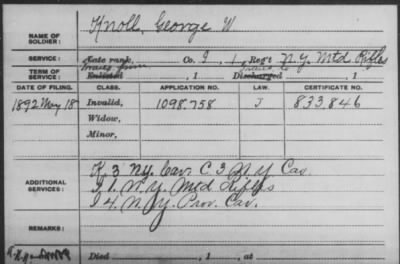 NAME OF SOLDIER: Knoll, George W
SERVICE: Late rank, Co. I, 1 Reg't N.Y. Mtd Rifles
TERM OF SERVICE: Enlisted , 1 Discharged , 1
DATE OF FILING. CLASS. APPLICATION NO. LAW. CERTIFICATE NO.
1892 May 18 Invalid, 1098.758 J 833.846
Widow,
Minor,
ADDITIONAL SERVICES: K. 3 N.Y. Cav. C. 3 N.Y. Cav
I 1. N.Y. Mtd Rifles
I 4. N.Y. Prov. Cav.
REMARKS:
Died , 1 , at